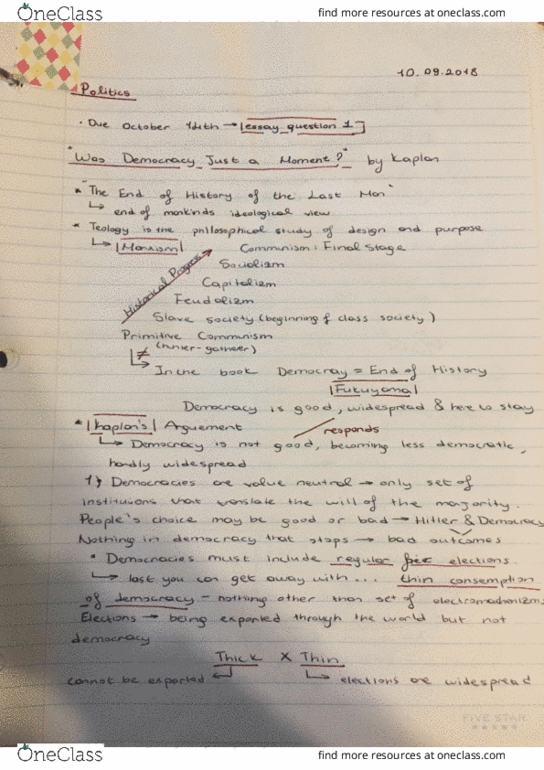 OneClass
find more resources at oneclass.com
10.09.2018
Politics
• Due October 12th → essay question 1
"Was Democracy Just a Moment?" by Kaplan
* "The End of History of the Last Man"
↳ end of mankinds ideological view
* Teology is the philosophical study of design and purpose
↳ Marxism Communism : Final Stage
Historical Progress
Socialism
Capitalism
Feudalism
Slave society (beginning of class society)
Primitive Communism
≠ (hunter-gatherer)
↳ In the book Democracy = End of History
Fukuyama
Democracy is good, widespread & here to stay
* Kaplan's Arguement responds
↳ Democracy is not good, becoming less democratic,
hardly widespread
1) Democracies are value neutral → only set of
instituions that translate the will of the majority.
People's choice may be good or bad → Hitler & Democracy
Nothing in democracy that stops → bad outcomes
* Democracies must include regular free elections.
↳ last you can get away with ... thin consemption
of democracy - nothing other than set of
Elections → being exported through the world but not
democracy
Thick X Thin
cannot be exported ↲ ↳ elections are widespread
FIVE STAR
OneClass
find more resources at oneclass.com